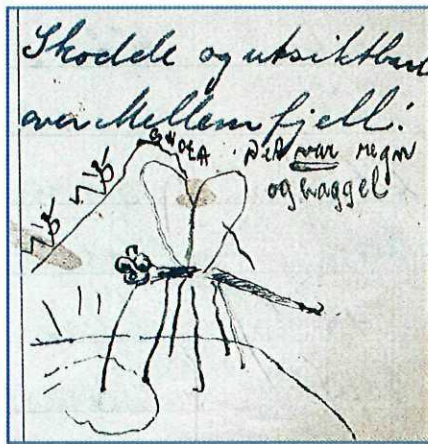 Skodde og utsiktbart
over Mellemfjell!
Det var regn
og haggel